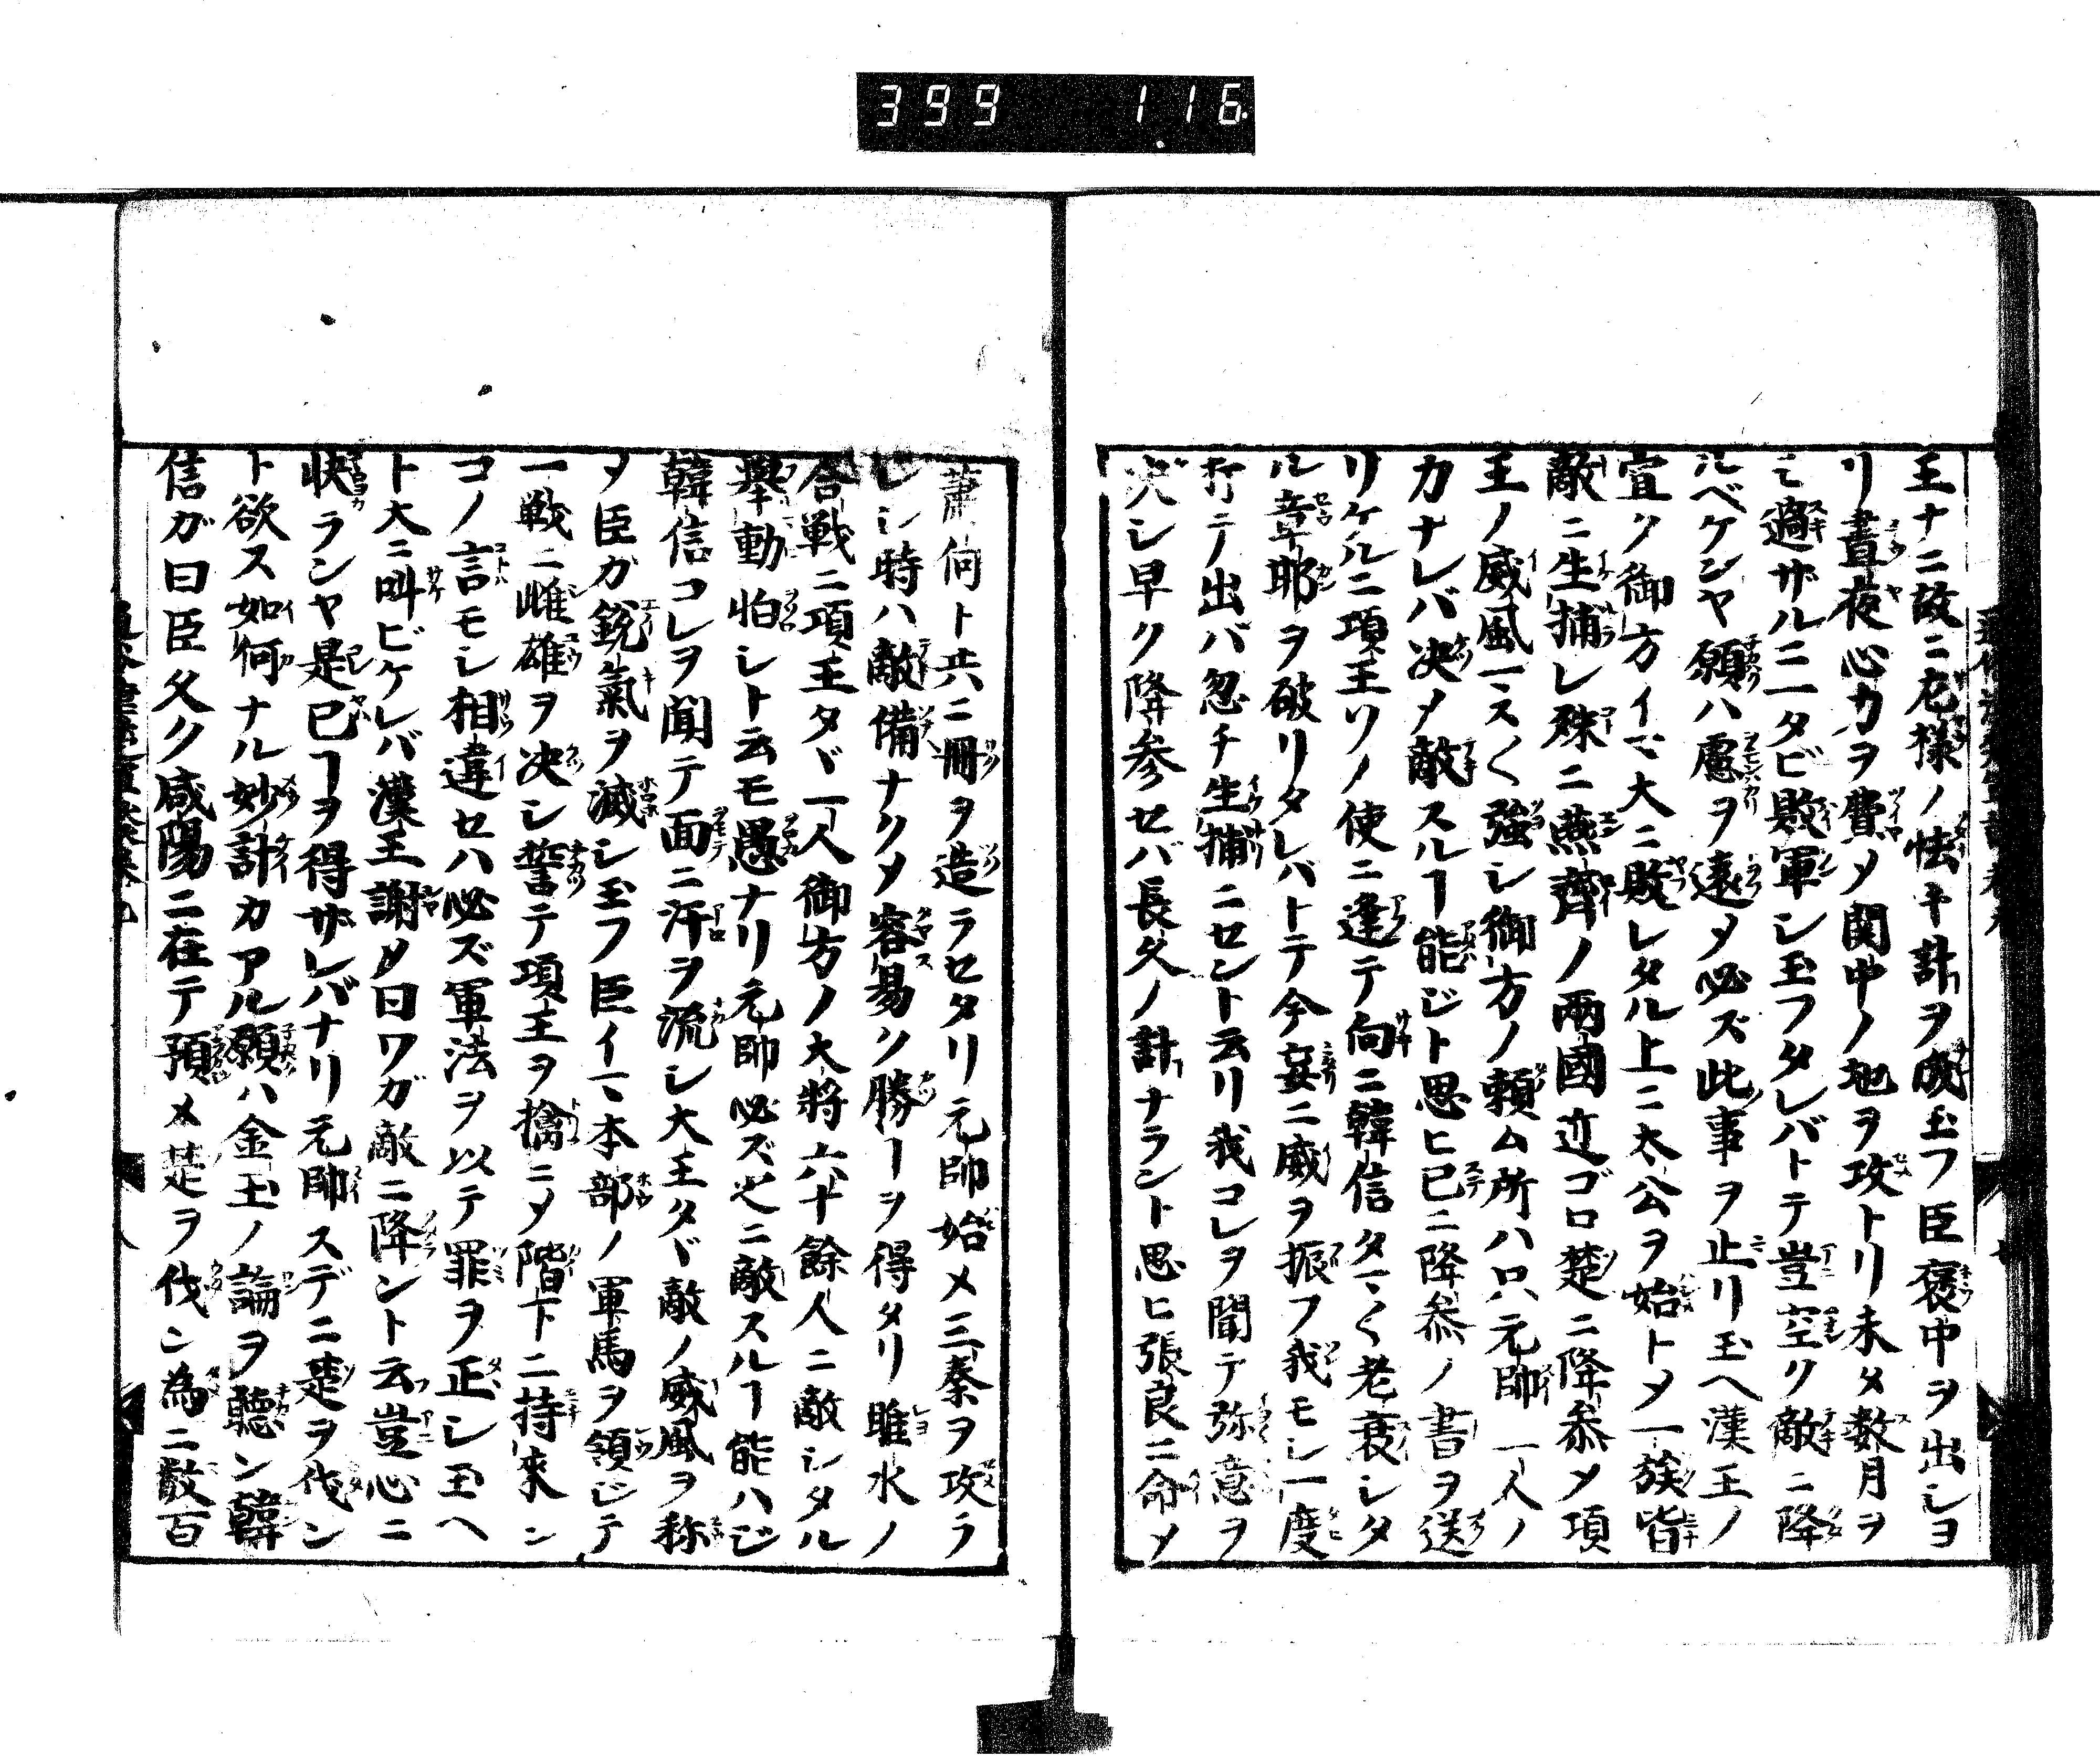 399 116
王ナニ故ニ左様ノ怯キ計ヲ成玉フ臣褒中ヲ出シヨ
リ晝夜心力ヲ費メ関中ノ地ヲ攻トリ未タ数月ヲ
モ過ザルニ一タビ敗軍シ玉フタレバトテ豈空ク敵ニ降
ルベケンヤ願ハ慮ヲ遠メ必ズ此事ヲ止リ玉ヘ漢王ノ
宣ク御方イマ大ニ敗レタル上ニ太公ヲ始トメ一族皆
敵ニ生捕レ殊ニ燕齊ノ兩國近ゴロ楚ニ降叅メ項
王ノ威風一々ス〱強シ御方ノ頼ム所ハ只元帥一人ノ
力ナレバ决メ敵スルヿ能ジト思ヒ已ニ降叅ノ書ヲ送
リケルニ項王ソノ使ニ逢テ向ニ韓信タマ〱老衰シタ
ル章邯ヲ破リタレバトテ今妄ニ威ヲ振フ我モシ一度
打テ出バ忽チ生捕ニセント云リ我コレヲ聞テ弥意ヲ
决シ早ク降参セバ長久ノ計ナラント思ヒ張良ニ命メ
蕭何ト共ニ冊ヲ造ラセタリ元帥始メ三秦ヲ攻ラ
レシ時ハ敵備ナクメ容易ク勝ヿヲ得タリ睢水ノ
合戦ニ項王タヾ一人御方ノ大將六十餘人ニ敵シタル
舉動怕シト云モ愚ナリ元帥必ズ之ニ敵スルヿ能ハジ
韓信コレヲ聞テ面ニ汗ヲ流シ大王タヾ敵ノ威風ヲ称
メ臣ガ銳氣ヲ滅シ玉フ臣イマ本部ノ軍馬ヲ領ジテ
一戦ニ雌雄ヲ决シ誓テ項王ヲ擒ニメ階下ニ持來ン
コノ言モシ相違セハ必ズ軍法ヲ以テ罪ヲ正シ玉ヘ
ト大ニ叫ビケレバ漢王謝メ曰ワガ敵ニ降ント云豈心ニ
快ランヤ是已ヿヲ得ザレバナリ元帥スデニ楚ヲ伐ン
ト欲ス如何ナル妙計カアル願ハ金玉ノ論ヲ聽ン韓
信ガ曰臣久ク咸陽ニ在テ預メ楚ヲ伐ン為ニ数百